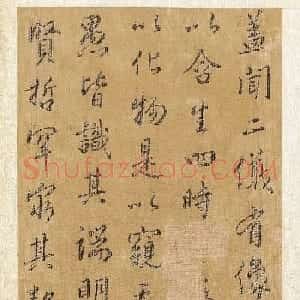 蓋聞二儀有像
以含生四時
以化物是以窺天
愚皆識其端明
賢哲罕窮其數